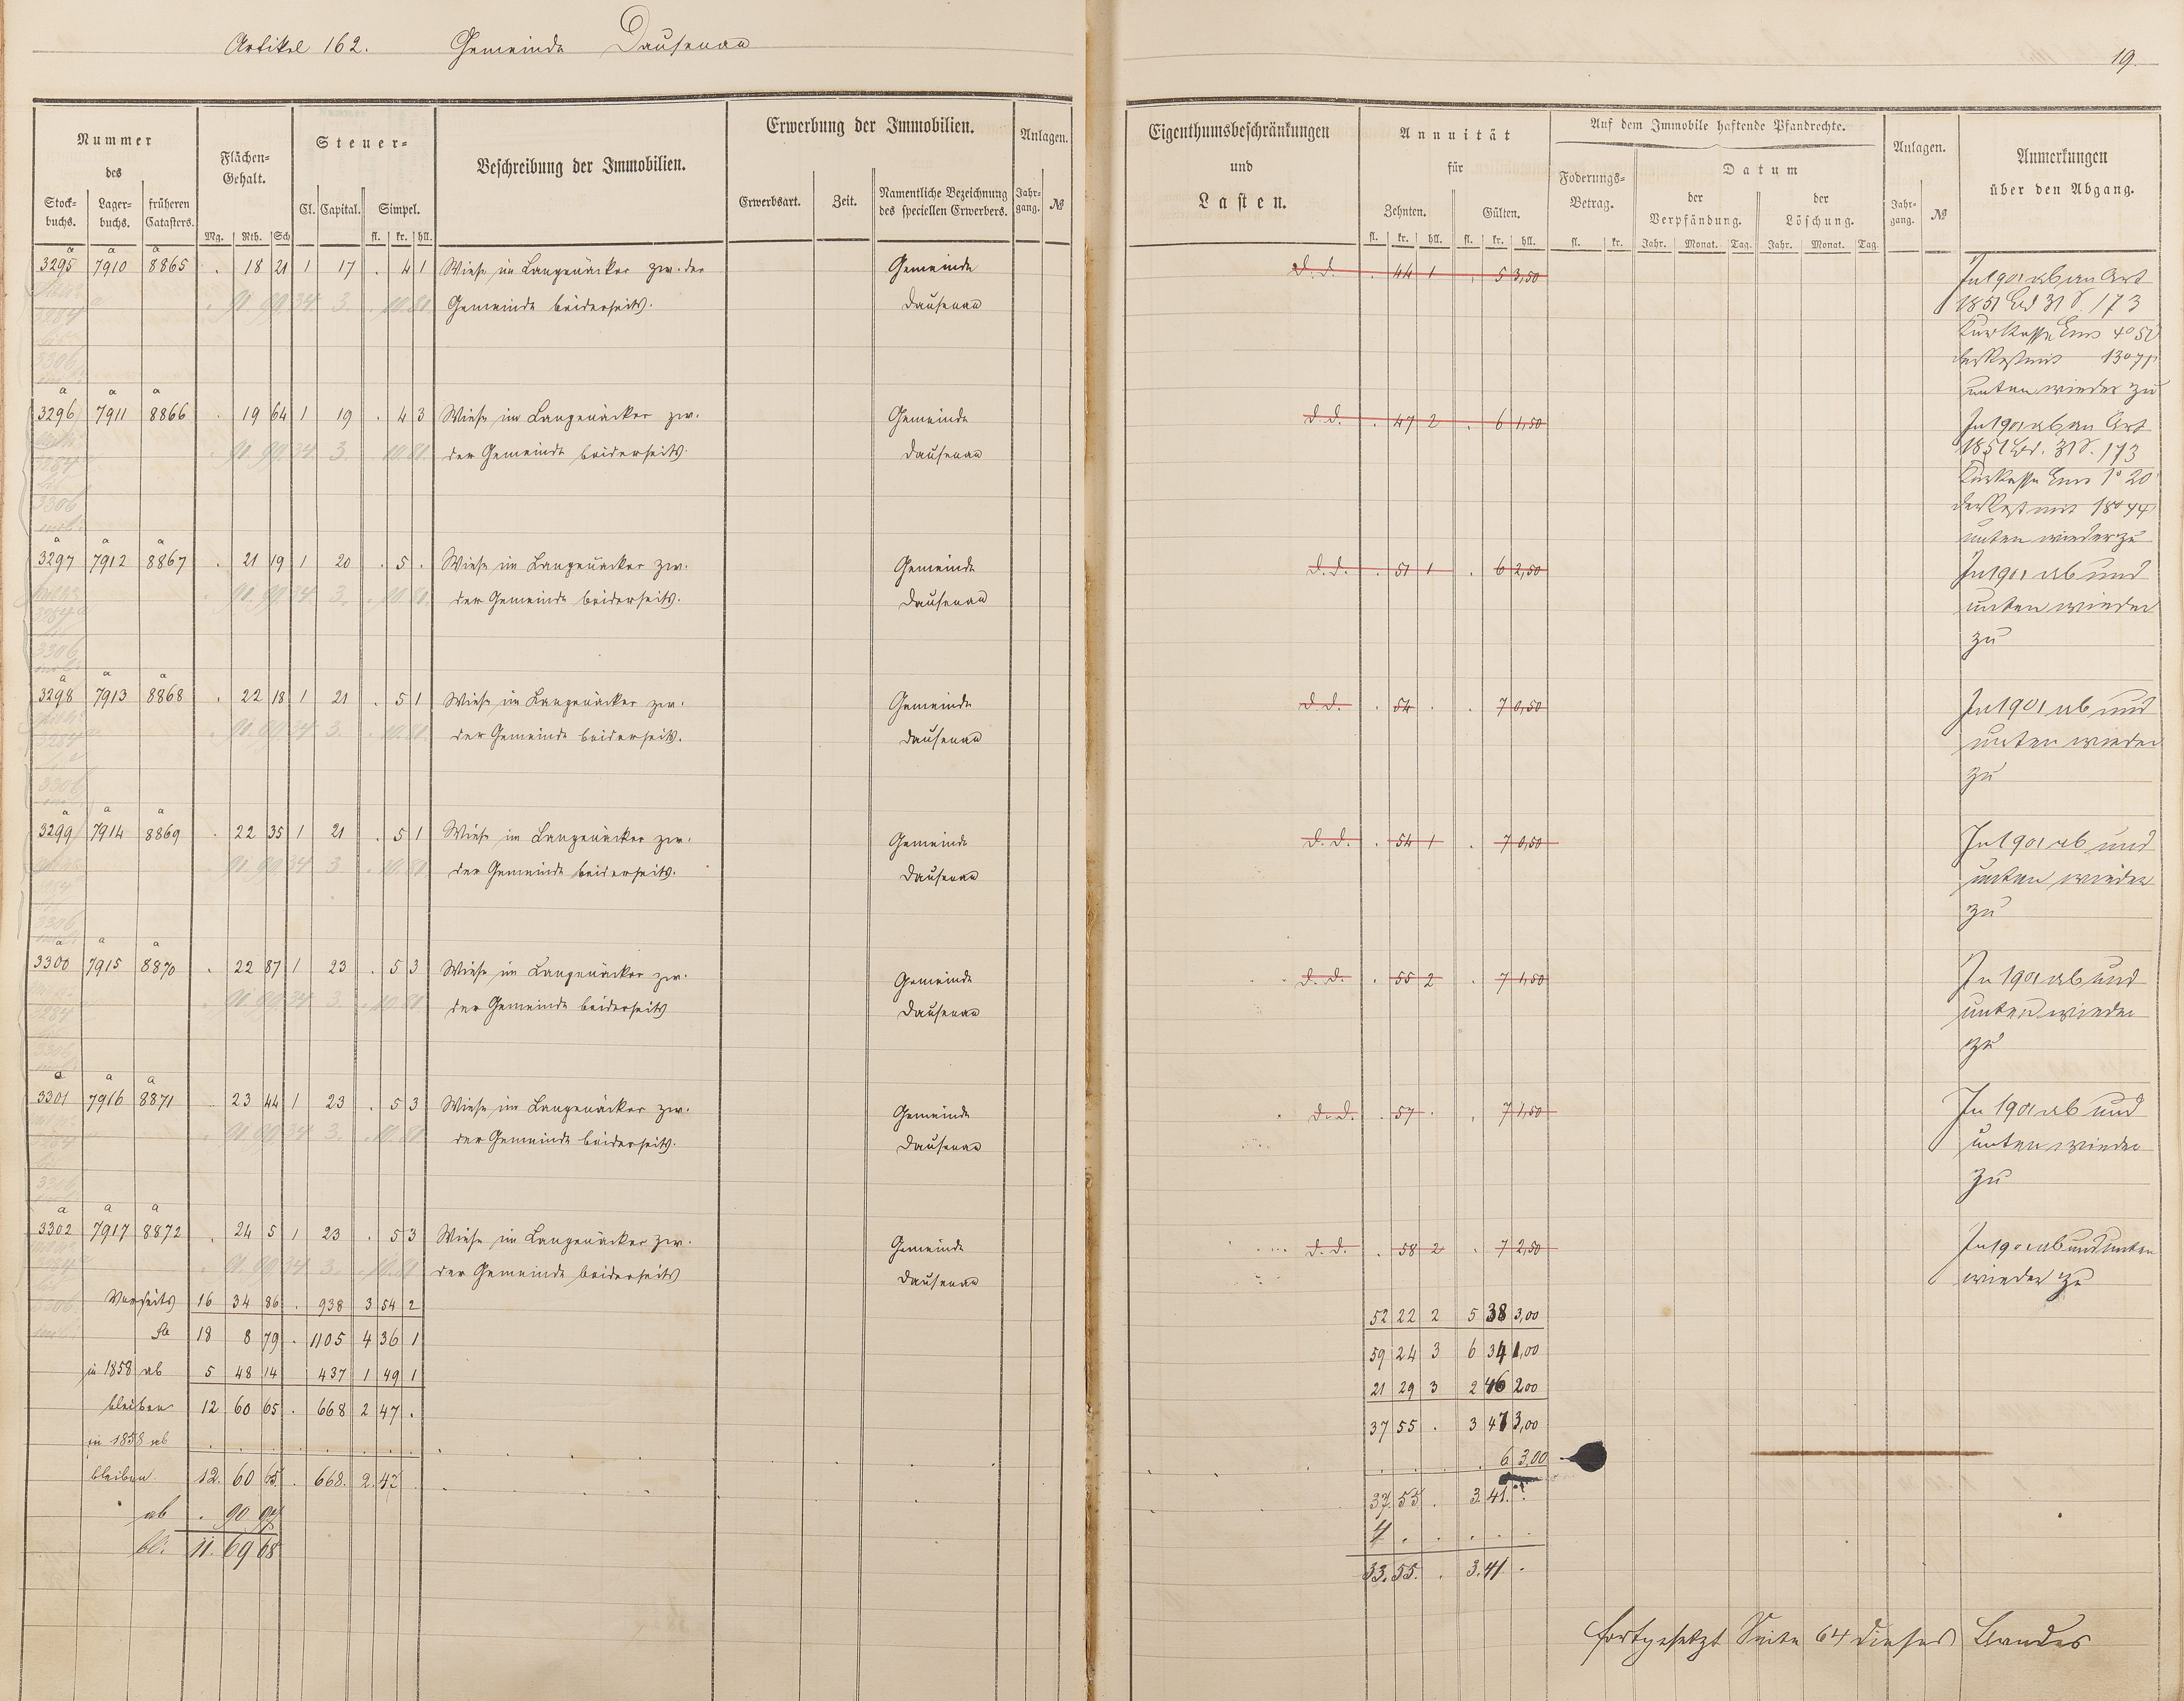 Artikel 162. Gemeinde Dausenau
19.
Nummer des
Stock-buchs. Lager-buchs. früheren Catasters.
Flächen-Gehalt.
Mg. Rth. Sch
Steuer-
Cl. Capital. Simpel.
fl. kr. hll.
Beschreibung der Immobilien.
Erwerbung der Immobilien.
Erwerbsart. Zeit. Namentliche Bezeichnung des speciellen Erwerbers.
Anlagen.
Jahr-gang. №
Eigenthumsbeschränkungen und Lasten.
Annuität für
Zehnten. Gülten.
fl. kr. hll. fl. kr. hll.
Auf dem Immobile haftende Pfandrechte.
Foderungs-Betrag.
fl. kr.
Datum
der Verpfändung. der Löschung.
Jahr. Monat. Tag. Jahr. Monat. Tag.
Anlagen.
Jahr-gang. №
Anmerkungen über den Abgang.
a a a
3295 7910 8865 . 18 21 1 17 . 4 1 Wiese im Langenäcker zw. der Gemeinde d. d. . 44 1 . 5 3,50 In 1901 ab an Art
Gemeinde beiderseits. Dausenau 1851 Bd 31 S. 173
Kurkasse Ems 4° 50
der Rest mit 13° 71
unten wieder zu
a a a
3296 7911 8866 . 19 64 1 19 . 4 3 Wiese im Langenäcker zw. Gemeinde d. d. . 47 2 . 6 1,50 In 1901 ab an Art
der Gemeinde beiderseits. Dausenau 1851 Bd. 31 S. 173
Kurkasse Ems 1° 20
der Rest mit 18° 44
unten wieder zu
a a a
3297 7912 8867 . 21 19 1 20 . 5 . Wiese im Langenäcker zw. Gemeinde d. d. . 51 1 . 6 2,50 In 1901 ab und
der Gemeinde beiderseits. Dausenau unten wieder
zu
a a a
3298 7913 8868 . 22 18 1 21 . 5 1 Wiese im Langenäcker zw. Gemeinde d. d. . 54 . . 7 0,50 In 1901 ab und
der Gemeinde beiderseits. Dausenau unten wieder
zu
a a a
3299 7914 8869 . 22 35 1 21 . 5 1 Wiese im Langenäcker zw. Gemeinde d. d. . 54 1 . 7 0,50 In 1901 ab und
der Gemeinde beiderseits. Dausenau unten wieder
zu
a a a
3300 7915 8870 . 22 87 1 23 . 5 3 Wiese im Langenäcker zw. Gemeinde d. d. . 55 2 . 7 1,50 In 1901 ab und
der Gemeinde beiderseits Dausenau unten wieder
zu
a a a
3301 7916 8871 . 23 44 1 23 . 5 3 Wiese im Langenäcker zw. Gemeinde d. d. . 57 . . 7 1,50 In 1901 ab und
der Gemeinde beiderseits. Dausenau unten wieder
zu
a a a
3302 7917 8872 . 24 5 1 23 . 5 3 Wiese im Langenäcker zw. Gemeinde d. d. . 58 2 . 7 2,50 In 1901 ab und unten
der Gemeinde beiderseits Dausenau wieder zu
Vorseits 16 34 86 . 938 3 54 2 52 22 2 5 38 3,00
Sa 18 8 79 . 1105 4 36 1 59 24 3 6 34 1,00
in 1858 ab 5 48 14 437 1 49 1 21 29 3 2 46 2,00
bleiben 12 60 65 . 668 2 47 . 37 55 . 3 47 3,00
in 1858 ab . . . . . . . . 6 3,00
bleiben. 12. 60 65 . 668. 2. 47 . 37. 55 . 3. 41. .
ab . 90 97 4 . . . . .
bl. 11. 69 68 33. 55. . 3. 41. .
fortgesetzt Seite 64 dieses Bandes